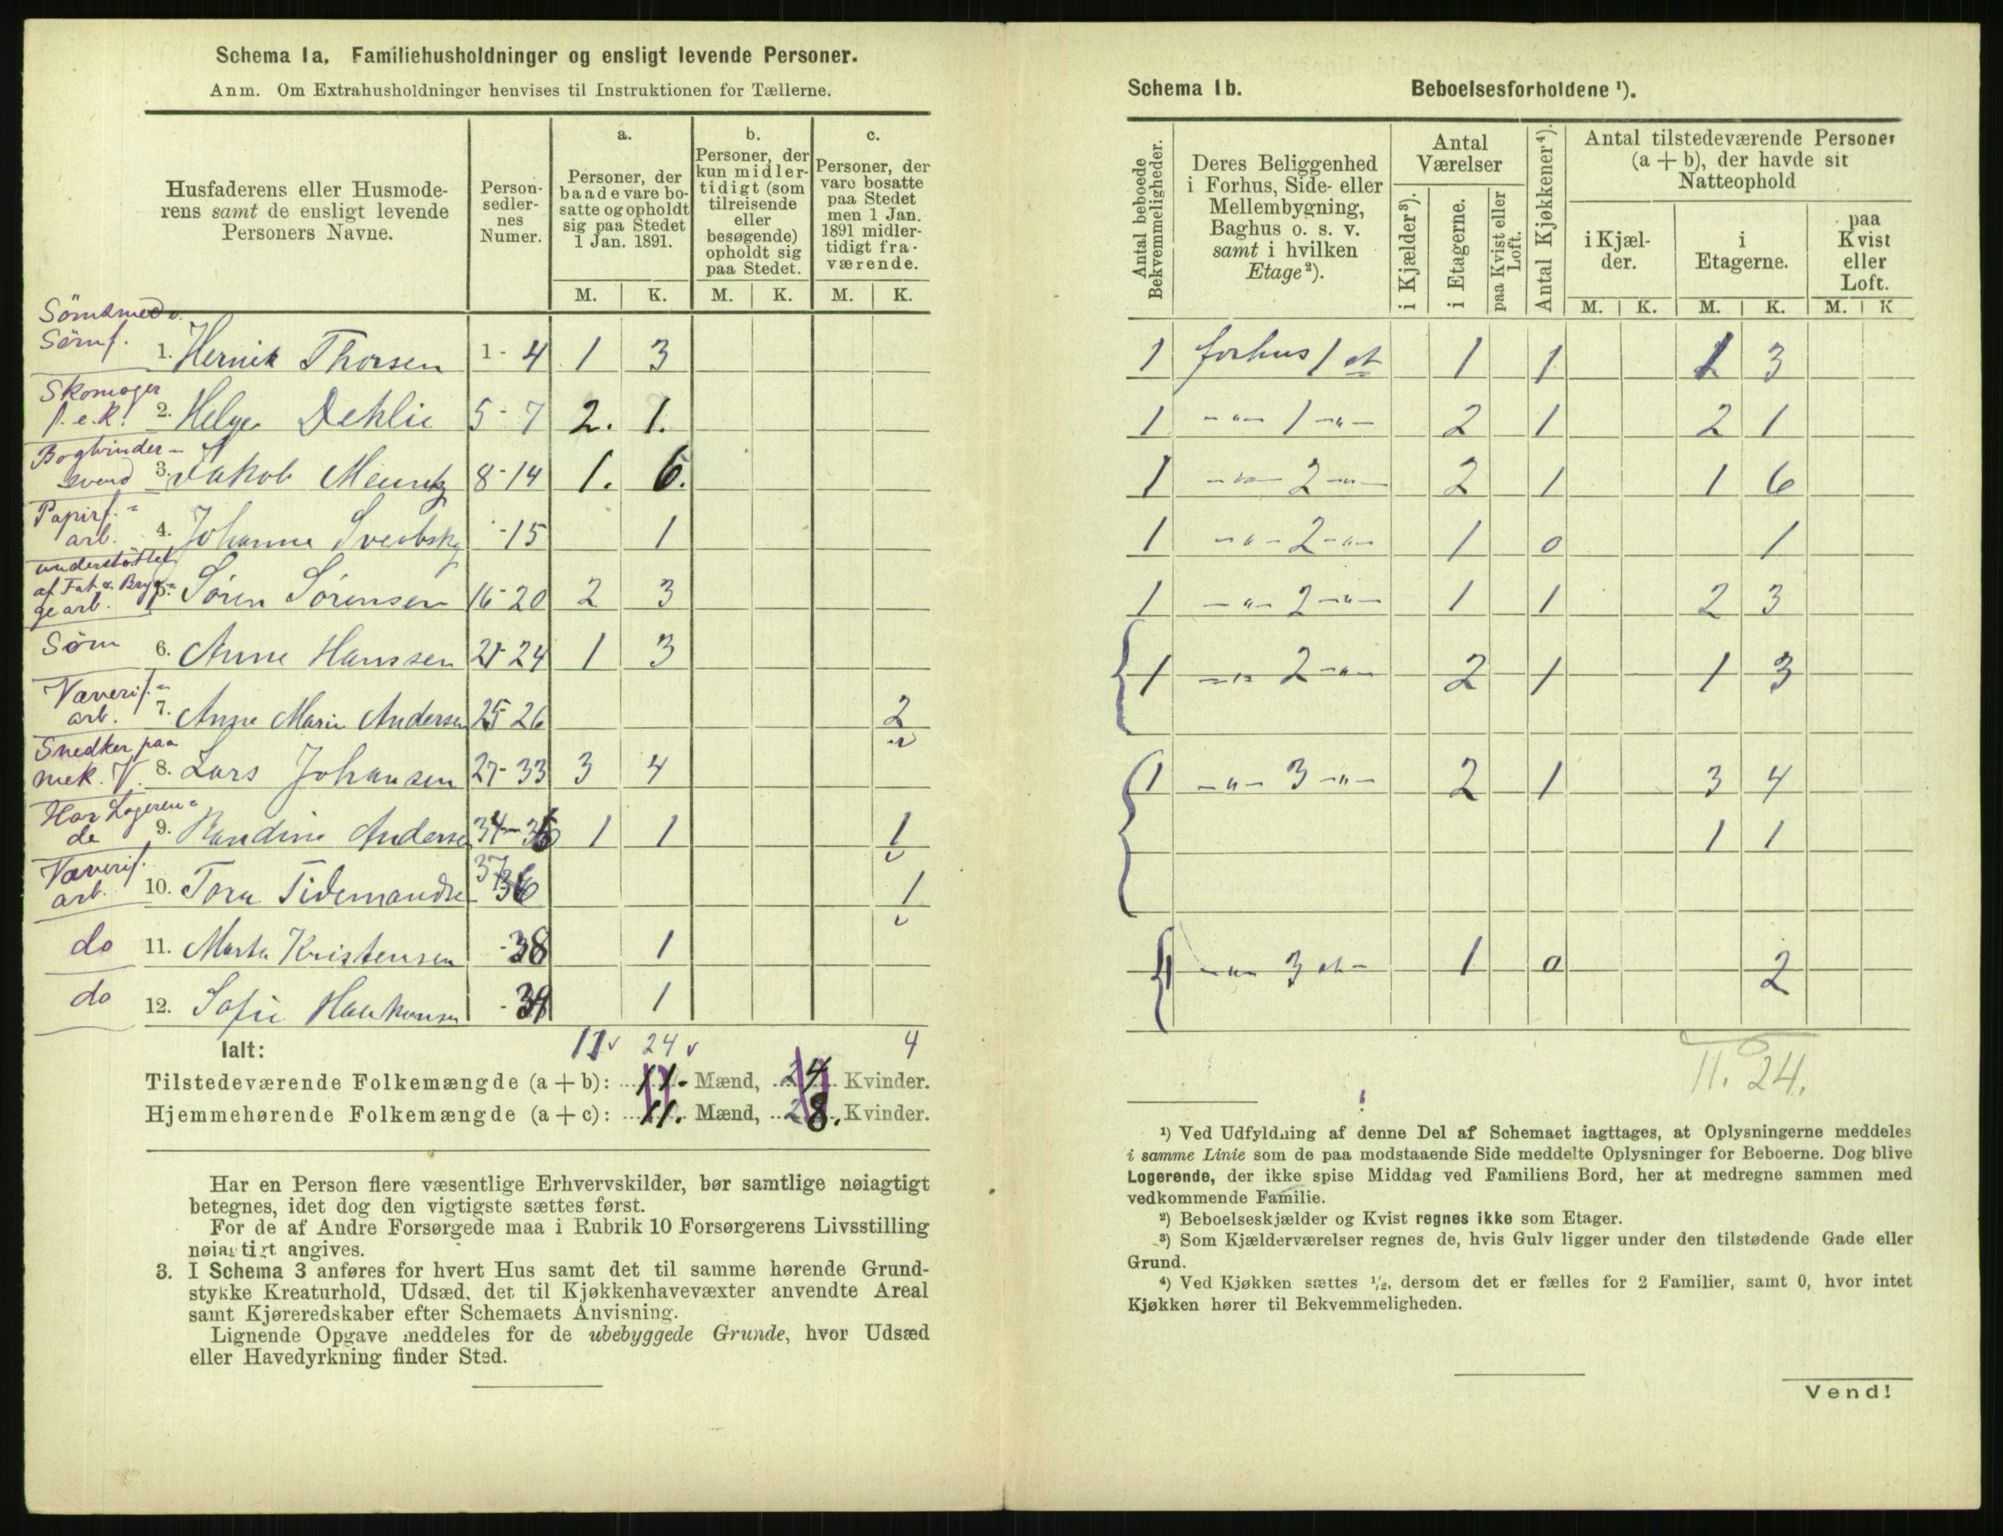 Schema 1a. Familiehusholdninger og ensligt levende Personer.
Anm. Om Extrahusholdninger henvises til Instruktionen for Tællerne.
Husfaderens eller Husmoderens samt de ensligt levende Personers Navne.
Personsedlernes Numer.
a. Personer, der baade vare bosatte og opholdt sig paa Stedet 1 Jan. 1891.
b. Personer, der kun midlertidigt (som tilreisende eller besøgende) opholdt sig paa Stedet.
c. Personer, der vare bosatte paa Stedet men 1 Jan. 1891 midlertidigt fraværende.
M. K. M. K. M. K.
Sömf. 1. Henrik Thorsen 1-4 1 3
Skomager f.e.R. 2. Helge Dehlie 5-7 2. 1.
Bogbindersvend 3. Jakob Meuntz 8-14 1. 6.
Papirf. arb. 4. Johanne -15 1
understöttet af Fat. & Bryggearb. 5. Søren Sørensen 16-20 2 3
Söm 6. Anne Hanssen 21-24 1 3
Væverif. arb. 7. Anne Marie Andersen 25 26 2
Snedker paa mek. V. 8. Lars Johansen 27-33 3 4
Har Logerende 9. Randine Anderse 34-36 1 1 1
Væverif. arb. 10. Tora Tidemandse 37 1
do 11. Marta Kristensen -38 1
do 12. Sofie Haakonsen -39 1
Ialt: 11 24 4
Tilstedeværende Folkemængde (a + b): 11. Mænd, 24 Kvinder.
Hjemmehørende Folkemængde (a + c): 11. Mænd, 28. Kvinder.
Har en Person flere væsentlige Erhvervskilder, bør samtlige nøiagtigt
betegnes, idet dog den vigtigste sættes først.
For de af Andre Forsørgede maa i Rubrik 10 Forsørgerens Livsstilling
nøiagtigt angives.
3. I Schema 3 anføres for hvert Hus samt det til samme hørende Grund-
stykke Kreaturhold, Udsæd, det til Kjøkkenhavevæxter anvendte Areal
samt Kjøreredskaber efter Schemaets Anvisning.
Lignende Opgave meddeles for de ubebyggede Grunde, hvor Udsæd
eller Havedyrkning finder Sted.
Schema 1b. Beboelsesforholdene ¹).
Antal beboede Bekvemmeligheder.
Deres Beliggenhed i Forhus, Side- eller Mellembygning, Baghus o. s. v. samt i hvilken Etage²).
Antal Værelser
i Kjælder³).
i Etagerne.
paa Kvist eller Loft.
Antal Kjøkkener⁴).
Antal tilstedeværende Personer (a + b), der havde sit Natteophold
i Kjælder.
i Etagerne.
paa Kvist eller Loft.
M. K. M. K. M. K
1 forhus 1 et 1 1 1 3
1 -"- 1 -"- 2 1 2 1
1 -"- 2 -"- 2 1 1 6
1 -"- 2 -"- 1 0 1
1 -"- 2 -"- 1 1 2 3
1 -"- 2 -"- 2 1 1 3
1 -"- 3 -"- 2 1 3 4
1 1
1 -"- 3 et- 1 0 2
11. 24.
¹) Ved Udfyldning af denne Del af Schemaet iagttages, at Oplysningerne meddeles
i samme Linie som de paa modstaaende Side meddelte Oplysninger for Beboerne. Dog blive
Logerende, der ikke spise Middag ved Familiens Bord, her at medregne sammen med
vedkommende Familie.
²) Beboelseskjælder og Kvist regnes ikke som Etager.
³) Som Kjælderværelser regnes de, hvis Gulv ligger under den tilstødende Gade eller
Grund.
⁴) Ved Kjøkken sættes ½, dersom det er fælles for 2 Familier, samt 0, hvor intet
Kjøkken hører til Bekvemmeligheden.
Vend!